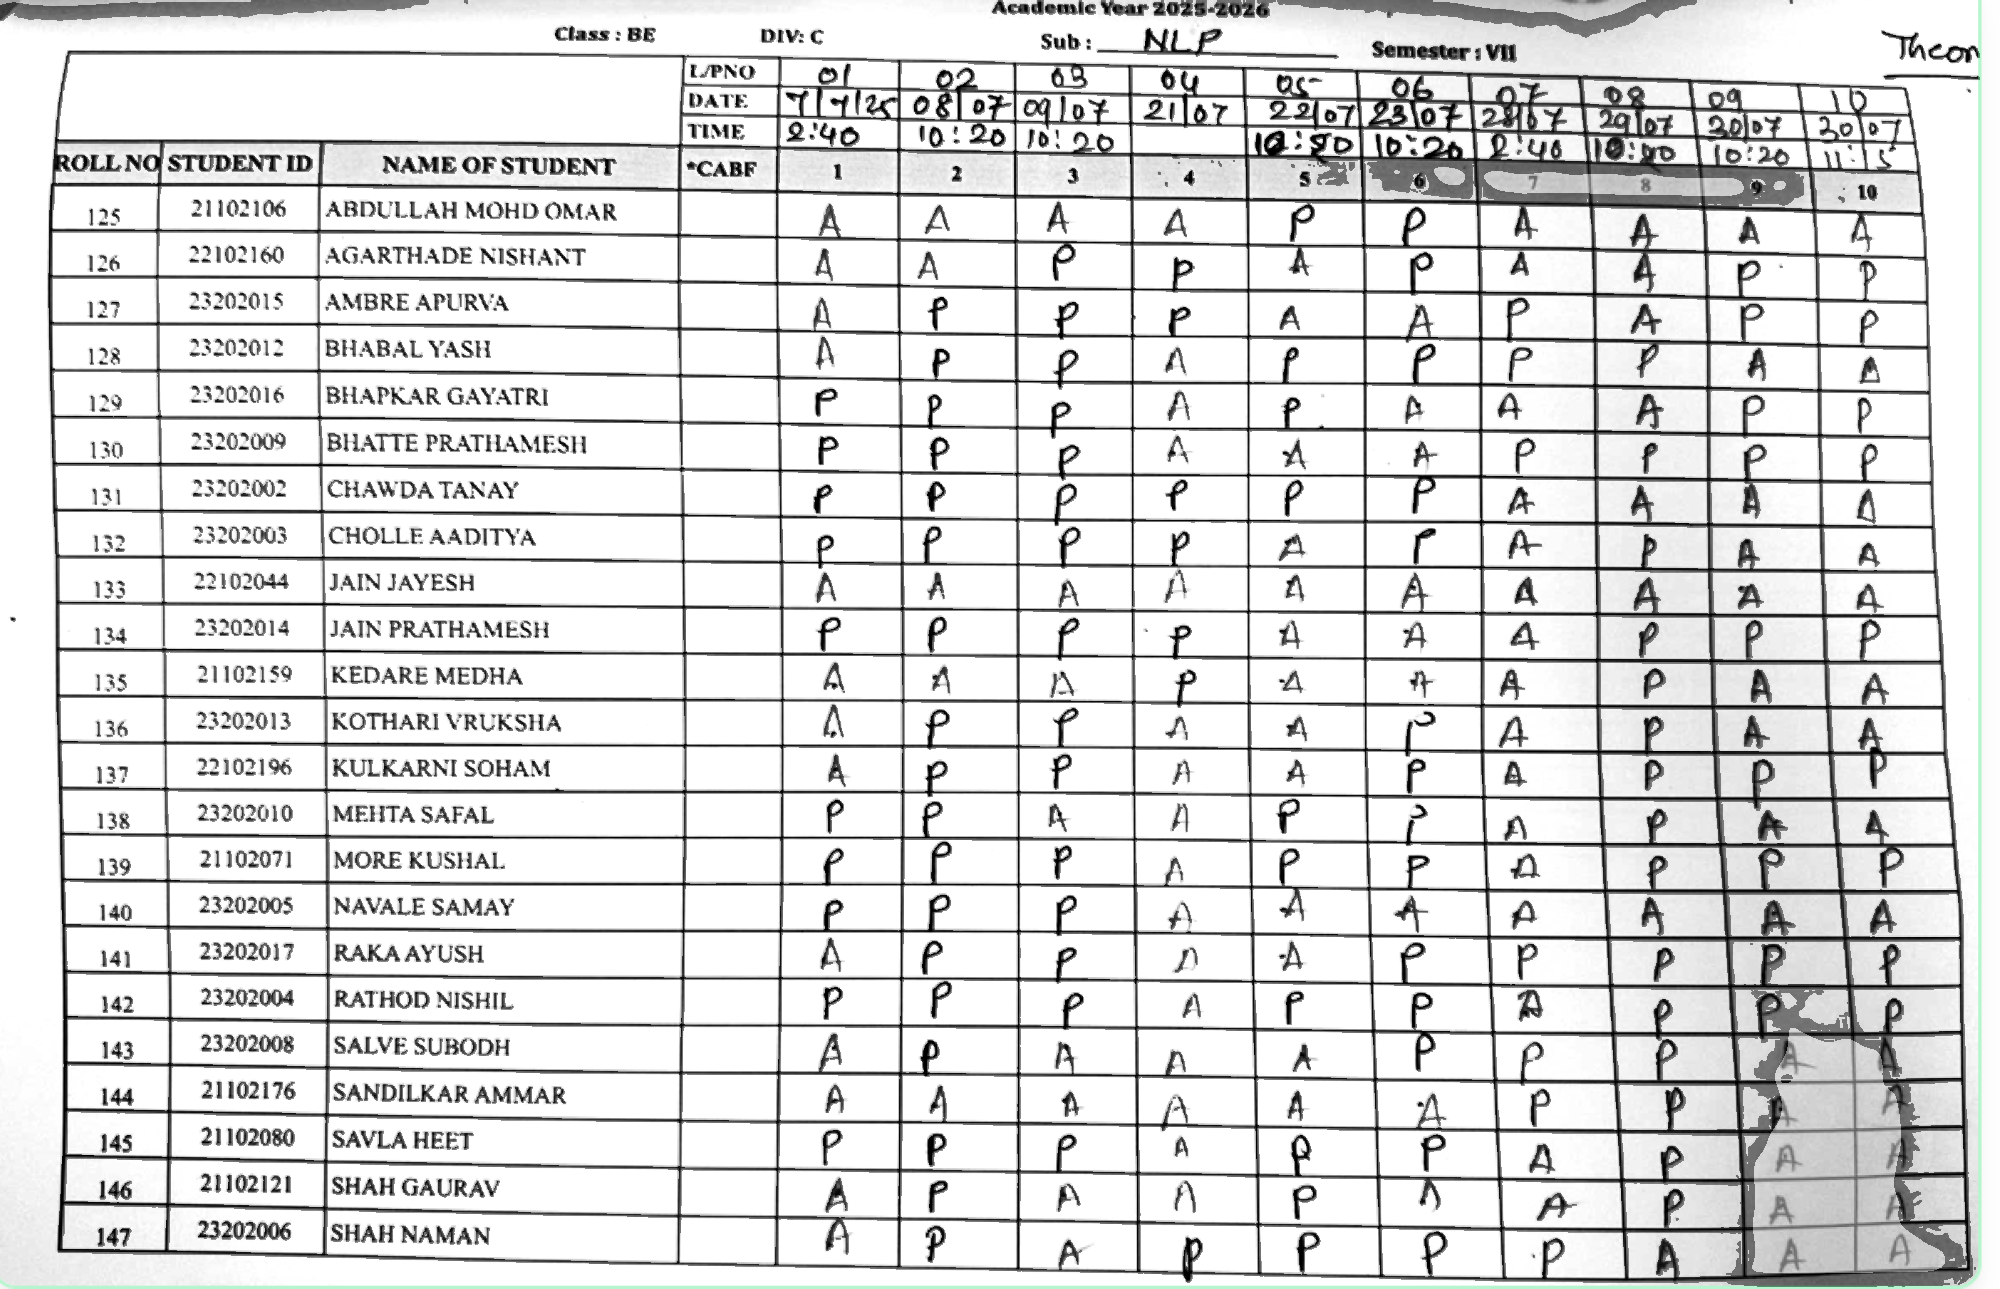 Academic Year 2025-2026
Class : BE DIV: C Sub : NLP Semester : VII Theon
L/PNO 01 02 03 04 05 06 07 08 09 10
DATE 7/7/25 08/07 09/07 21/07 22/07 23/07 28/07 29/07 30/07 30/07
TIME 2:40 10:20 10:20 10:20 10:20 2:40 10:20 10:20 11:15
ROLL NO STUDENT ID NAME OF STUDENT *CABF 1 2 3 4 5 6 7 8 9 10
125 21102106 ABDULLAH MOHD OMAR A A A A P P A A A A
126 22102160 AGARTHADE NISHANT A A P P A P A A P P
127 23202015 AMBRE APURVA A P P P A A P A P P
128 23202012 BHABAL YASH A P P A P P P P A A
129 23202016 BHAPKAR GAYATRI P P P A P A A A P P
130 23202009 BHATTE PRATHAMESH P P P A A A P P P P
131 23202002 CHAWDA TANAY P P P P P P A A A A
132 23202003 CHOLLE AADITYA P P P P A P A P A A
133 22102044 JAIN JAYESH A A A A A A A A A A
134 23202014 JAIN PRATHAMESH P P P P A A A P P P
135 21102159 KEDARE MEDHA A A A P A A A P A A
136 23202013 KOTHARI VRUKSHA A P P A A P A P A A
137 22102196 KULKARNI SOHAM A P P A A P A P P P
138 23202010 MEHTA SAFAL P P A A P P A P A A
139 21102071 MORE KUSHAL P P P A P P A P P P
140 23202005 NAVALE SAMAY P P P A A A A A A A
141 23202017 RAKA AYUSH A P P A A P P P P P
142 23202004 RATHOD NISHIL P P P A P P A P P P
143 23202008 SALVE SUBODH A P A A A P P P A A
144 21102176 SANDILKAR AMMAR A A A A A A P P A A
145 21102080 SAVLA HEET P P P A P P A P A A
146 21102121 SHAH GAURAV A P A A P A A P A A
147 23202006 SHAH NAMAN A P A P P P P A A A